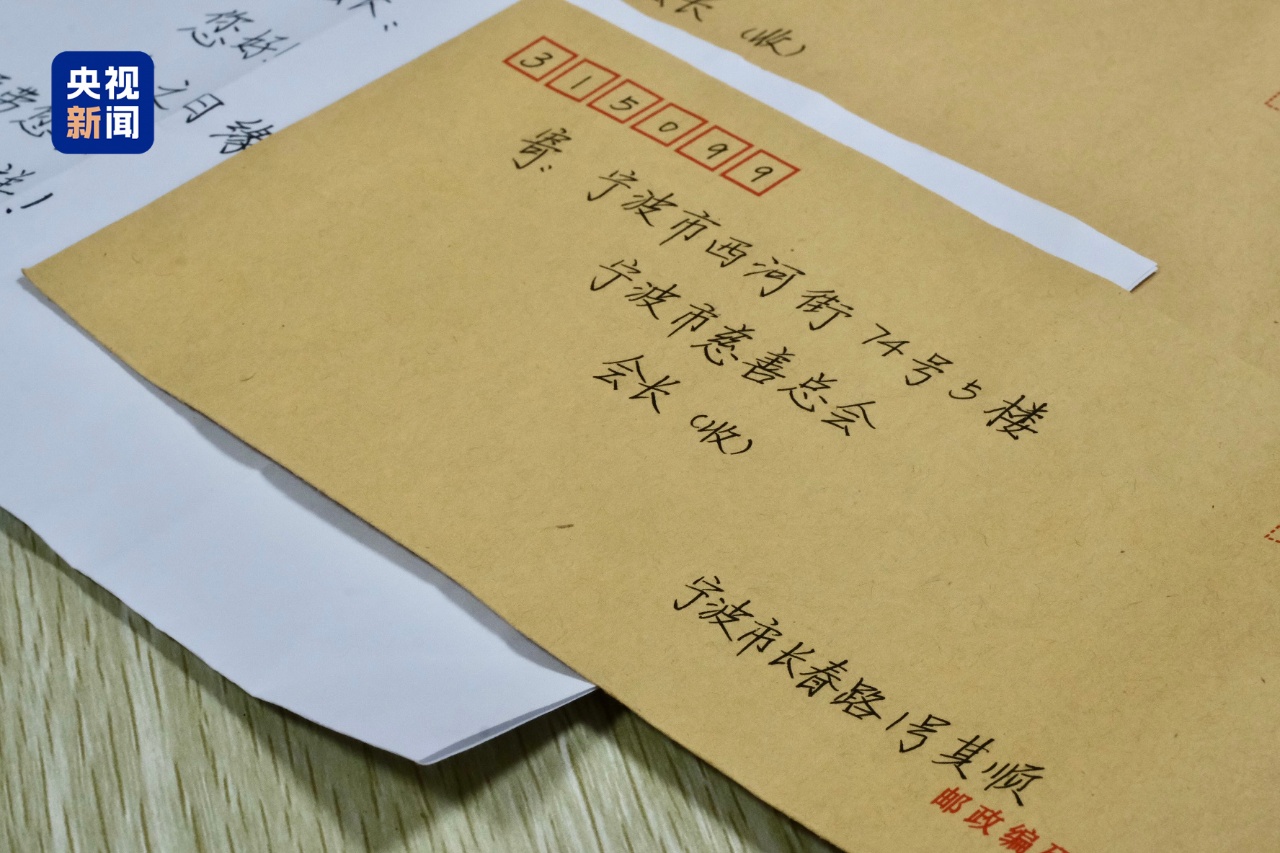 央视
新闻
您好!
之日缘
会长 (收)
315099
寄: 宁波市西河街74号5楼
宁波市慈善总会
会长 (收)
宁波市长春路1号其顺
邮政编